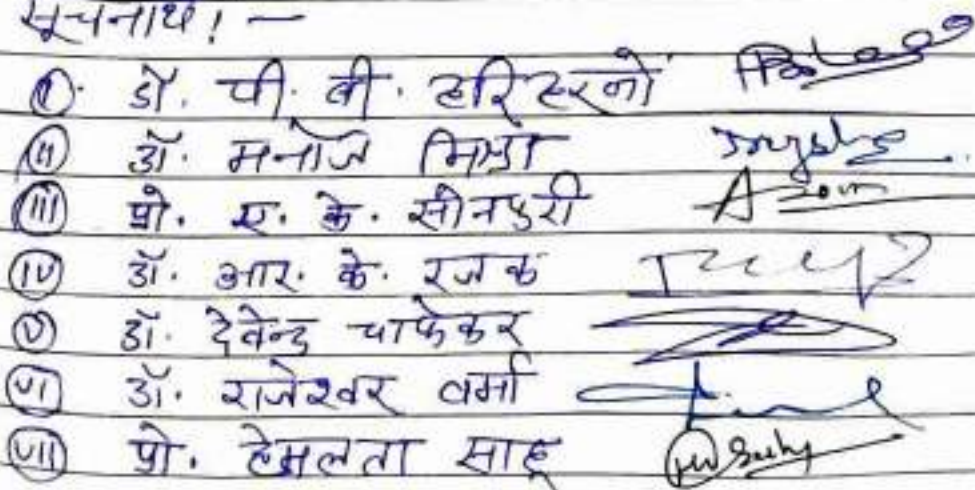 सूचनार्थ! —
(I) डॉ. पी. बी. हरिहरनो
(II) डॉ. मनोज मिश्रा
(III) प्रो. ए. के. सोनपुरी
(IV) डॉ. आर. के. रजक
(V) डॉ. देवेन्द्र चाफेकर
(VI) डॉ. राजेश्वर वर्मा
(VII) प्रो. हेमलता साहू